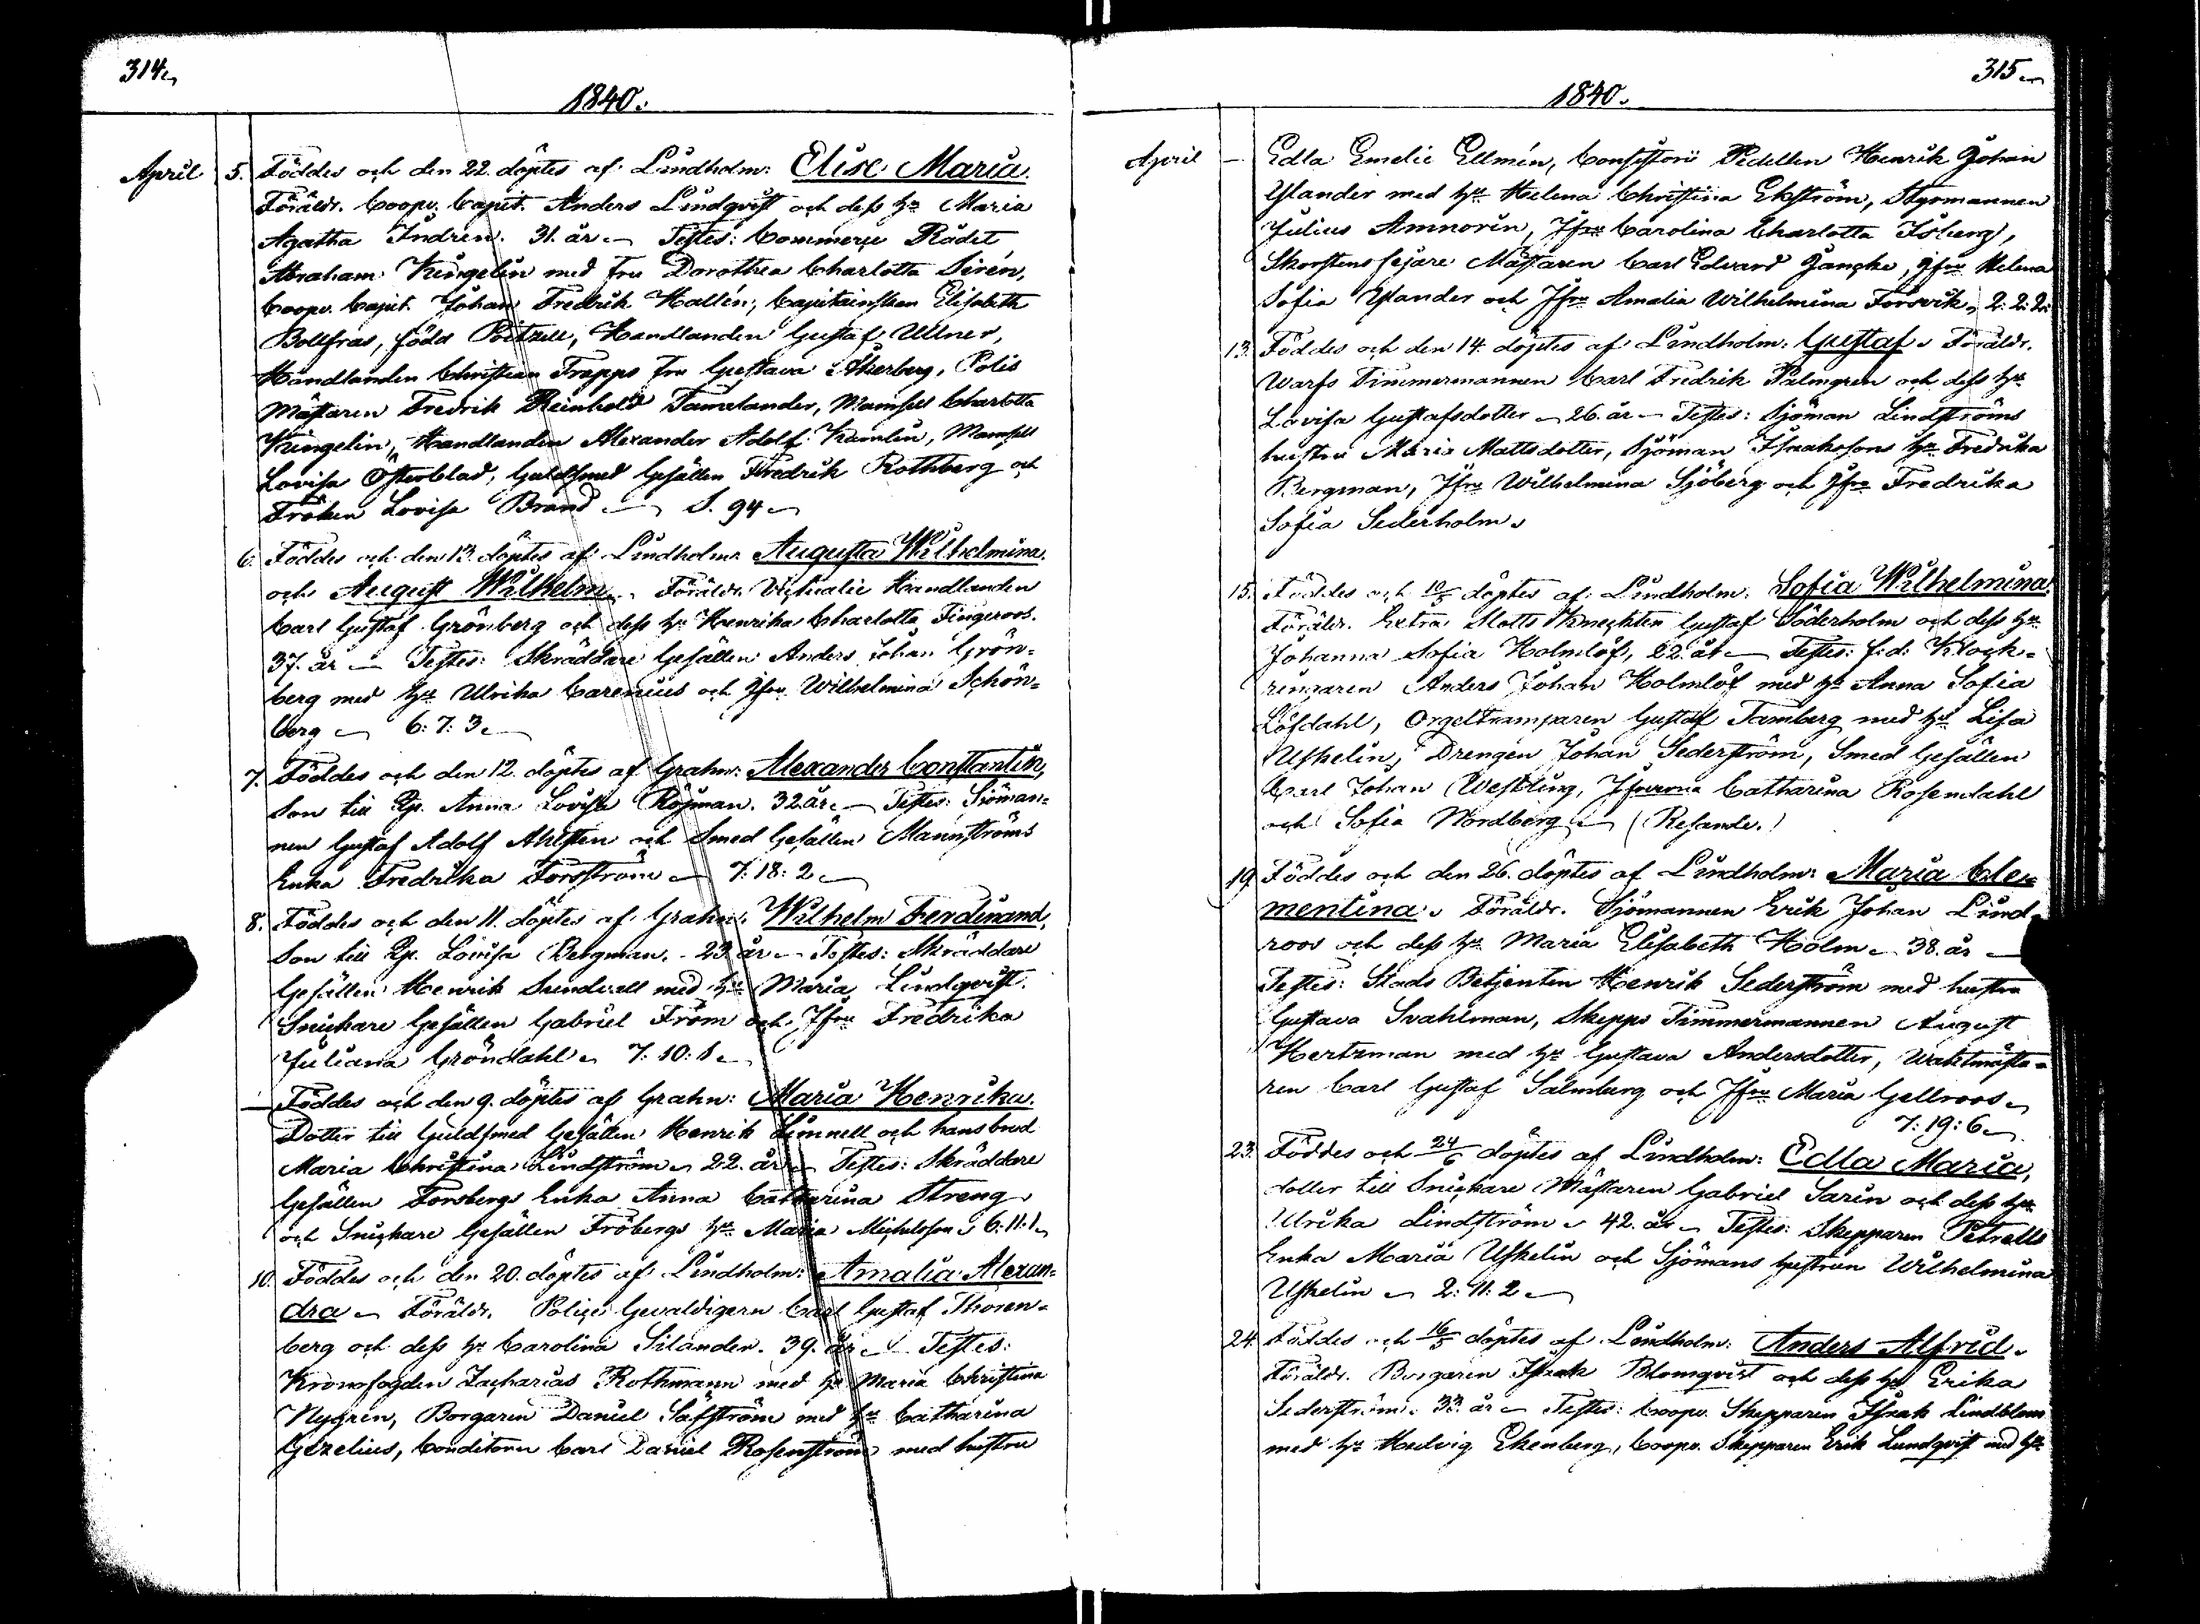 314.
1840.
April 5. Föddes och den 22. döptes af Lindholm: Elise Maria.
Föräldr. Coopv. Capit. Anders Lindqvist och dess h:u Maria
Agatha Indrén. 31. år. Testes: Commerse Rådet
Abraham Kingelin med fru Dorothea Charlotta Sirén,
Coopv. Capit. Johan Fredrik Hallén, Capitainskan Elisabeth
Bollfras, född Poitzell, Handlanden Gustaf Ullner,
Handlanden Christian Trapps fru Gustava Åkerberg, Polis
Mästaren Fredrik Reinhold Tamelander, Mamsell Charlotta
Kingelin, Handlanden Alexander Adolf Kamlin, Mamsell
Lovisa Österblad, Guldsmed Gesällen Fredrik Rothberg och
Fröken Lovisa Brand S. 94
6. Föddes och den 13. döptes af Lindholm Augusta Wilhelmina.
och August Wilhelm. Föräldr. Victualie Handlanden
Carl Gustaf Grönberg och dess h:u Henrika Charlotta Fingerroos.
37. år Testes: Skräddare Gesällen Anders Johan Grön=
berg med h:u Ulrika Carenius och Jfru Wilhelmina Schön=
berg 6: 7: 3
7. Föddes och den 12. döptes af Grahn: Alexander Constantin,
Son till Qp. Anna Lovisa Röjman. 32 år. Testes: Sjöman=
nen Gustaf Adolf Ahlsten och Smed Gesällen Mannströms
Enka Fredrika Forsström 7: 18: 2
8. Föddes och den 11. döptes af Grahn: Wilhelm Ferdinand,
Son till Qp. Lovisa Bergman. 23 år Testes: Skräddare
Gesällen Henrik Sundvall med h:u Maria Lindqvist.
Snickare Gesällen Gabriel Fröm och Jfru Fredrika
Juliana Gröndahl 7: 10: 1
— Föddes och den 9. döptes af Grahn: Maria Henrika.
Dotter till Guldsmed Gesällen Henrik Limnell och hans brud
Maria Christina Lindström 22. år Testes: Skräddare
Gesällen Forsbergs Enka Anna Catharina Streng
och Snickare Gesällen Fröbergs h:u Maria Michelsson 6: 11: 1
10. Föddes och den 20. döptes af Lindholm: Amalia Alexan=
dra Föräldr. Polise Gevaldigern Carl Gustaf Thoren=
berg och dess h:u Carolina Silander. 39. år Testes:
Kronofogden Zacharias Rothmann med h:u Maria Christina
Nygrén, Borgaren Daniel Säfström med h:u Catharina
Gezelius, Conditorn Carl Daniel Rosenström med hustru
315
1840.
April — Edla Emelie Ellmén, Consistorii Pedellen Henrik Johan
Ylander med h:u Helena Christina Ekström, Styrmannen
Julius Amnorin, Jfru Carolina Charlotta Isberg,
Skorstens fejare Mästaren Carl Edvard Jancke, Jfru Helena
Sofia Ylander och Jfru Amalia Wilhelmina Forsvik, 2: 2: 2.
13. Föddes och den 14. döptes af Lindholm: Gustaf. Föräldr.
Warfs Timmermannen Carl Fredrik Palmgren och dess h:u
Lovisa Gustafsdotter 26. år Testes: Sjöman Lindströms
hustru Maria Mattsdotter, Sjöman Isaakssons h:u Fredrika
Bergman, Jfru Wilhelmina Sjöberg och Jfru Fredrika
Sofia Sederholm
15. Föddes och 10/5 döptes af Lindholm: Sofia Wilhelmina.
Föräldr. Extra Slotts Knechten Gustaf Söderholm och dess h:u
Johanna Sofia Holmlöf, 22. år Testes: f.d. Klock=
ringaren Anders Johan Holmlöf med h:u Anna Sofia
Löfdahl, Orgeltramparen Gustaf Tamberg med h:u Lisa
Uskelin, Drengen Johan Sederström, Smed Gesällen
Carl Johan Westling, Jfruerna Catharina Rosendahl
och Sofia Nordberg (Resande.)
19. Föddes och den 26. döptes af Lindholm: Maria Cle=
mentina. Föräldr. Sjömannen Erik Johan Lind=
roos och dess h:u Maria Elisabeth Holm 38. år
Testes: Stads Betjenten Henrik Sederström med hustru
Gustava Svahlman, Skepps Timmermannen August
Hertzman med h:u Gustava Andersdotter, Waktmästa=
ren Carl Gustaf Salmberg och Jfru Maria Gellroos
7: 19: 6
23. Föddes och 24/6 döptes af Lindholm: Edla Maria,
dotter till Snickare Mästaren Gabriel Sarin och dess h:u
Ulrika Lindström 42. år Testes: Skepparen Petrells
Enka Maria Uskelin och Sjömans hustrun Wilhelmina
Uskelin 2: 11: 2
24. Föddes och 16/5 döptes af Lindholm: Anders Alfrid.
Föräldr. Borgaren Isaak Blomqvist och dess h:u Erika
Sederström. 33. år Testes: Coopv. Skepparen Isaak Lindblom
med h:u Hedvig Ekenberg, Coopv. Skepparen Erik Lundqvist med h:u